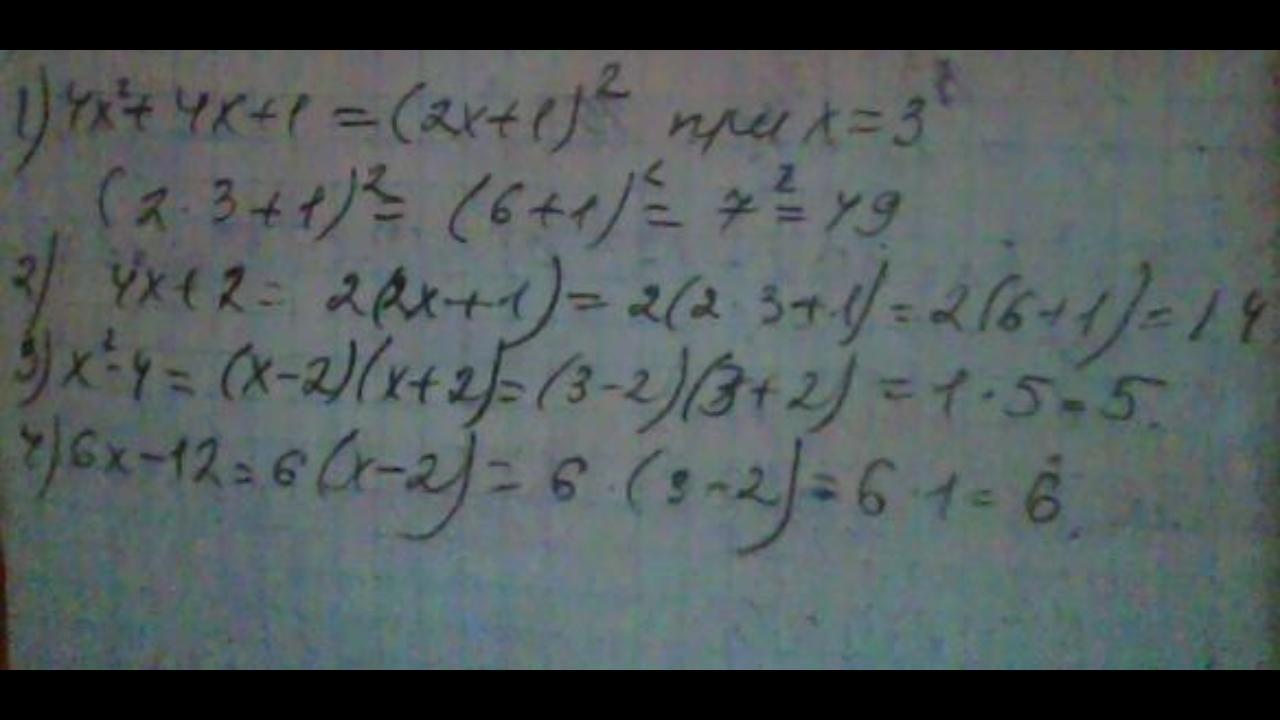 1) 4x²+ 4x+1 = (2x+1)² при x = 3
(2·3+1)² = (6+1)² = 7² = 49
2) 4x+2 = 2(2x+1) = 2(2·3+1) = 2(6+1) = 14
3) x²-4 = (x-2)(x+2) = (3-2)(3+2) = 1·5 = 5.
4) 6x-12 = 6(x-2) = 6·(3-2) = 6·1 = 6.